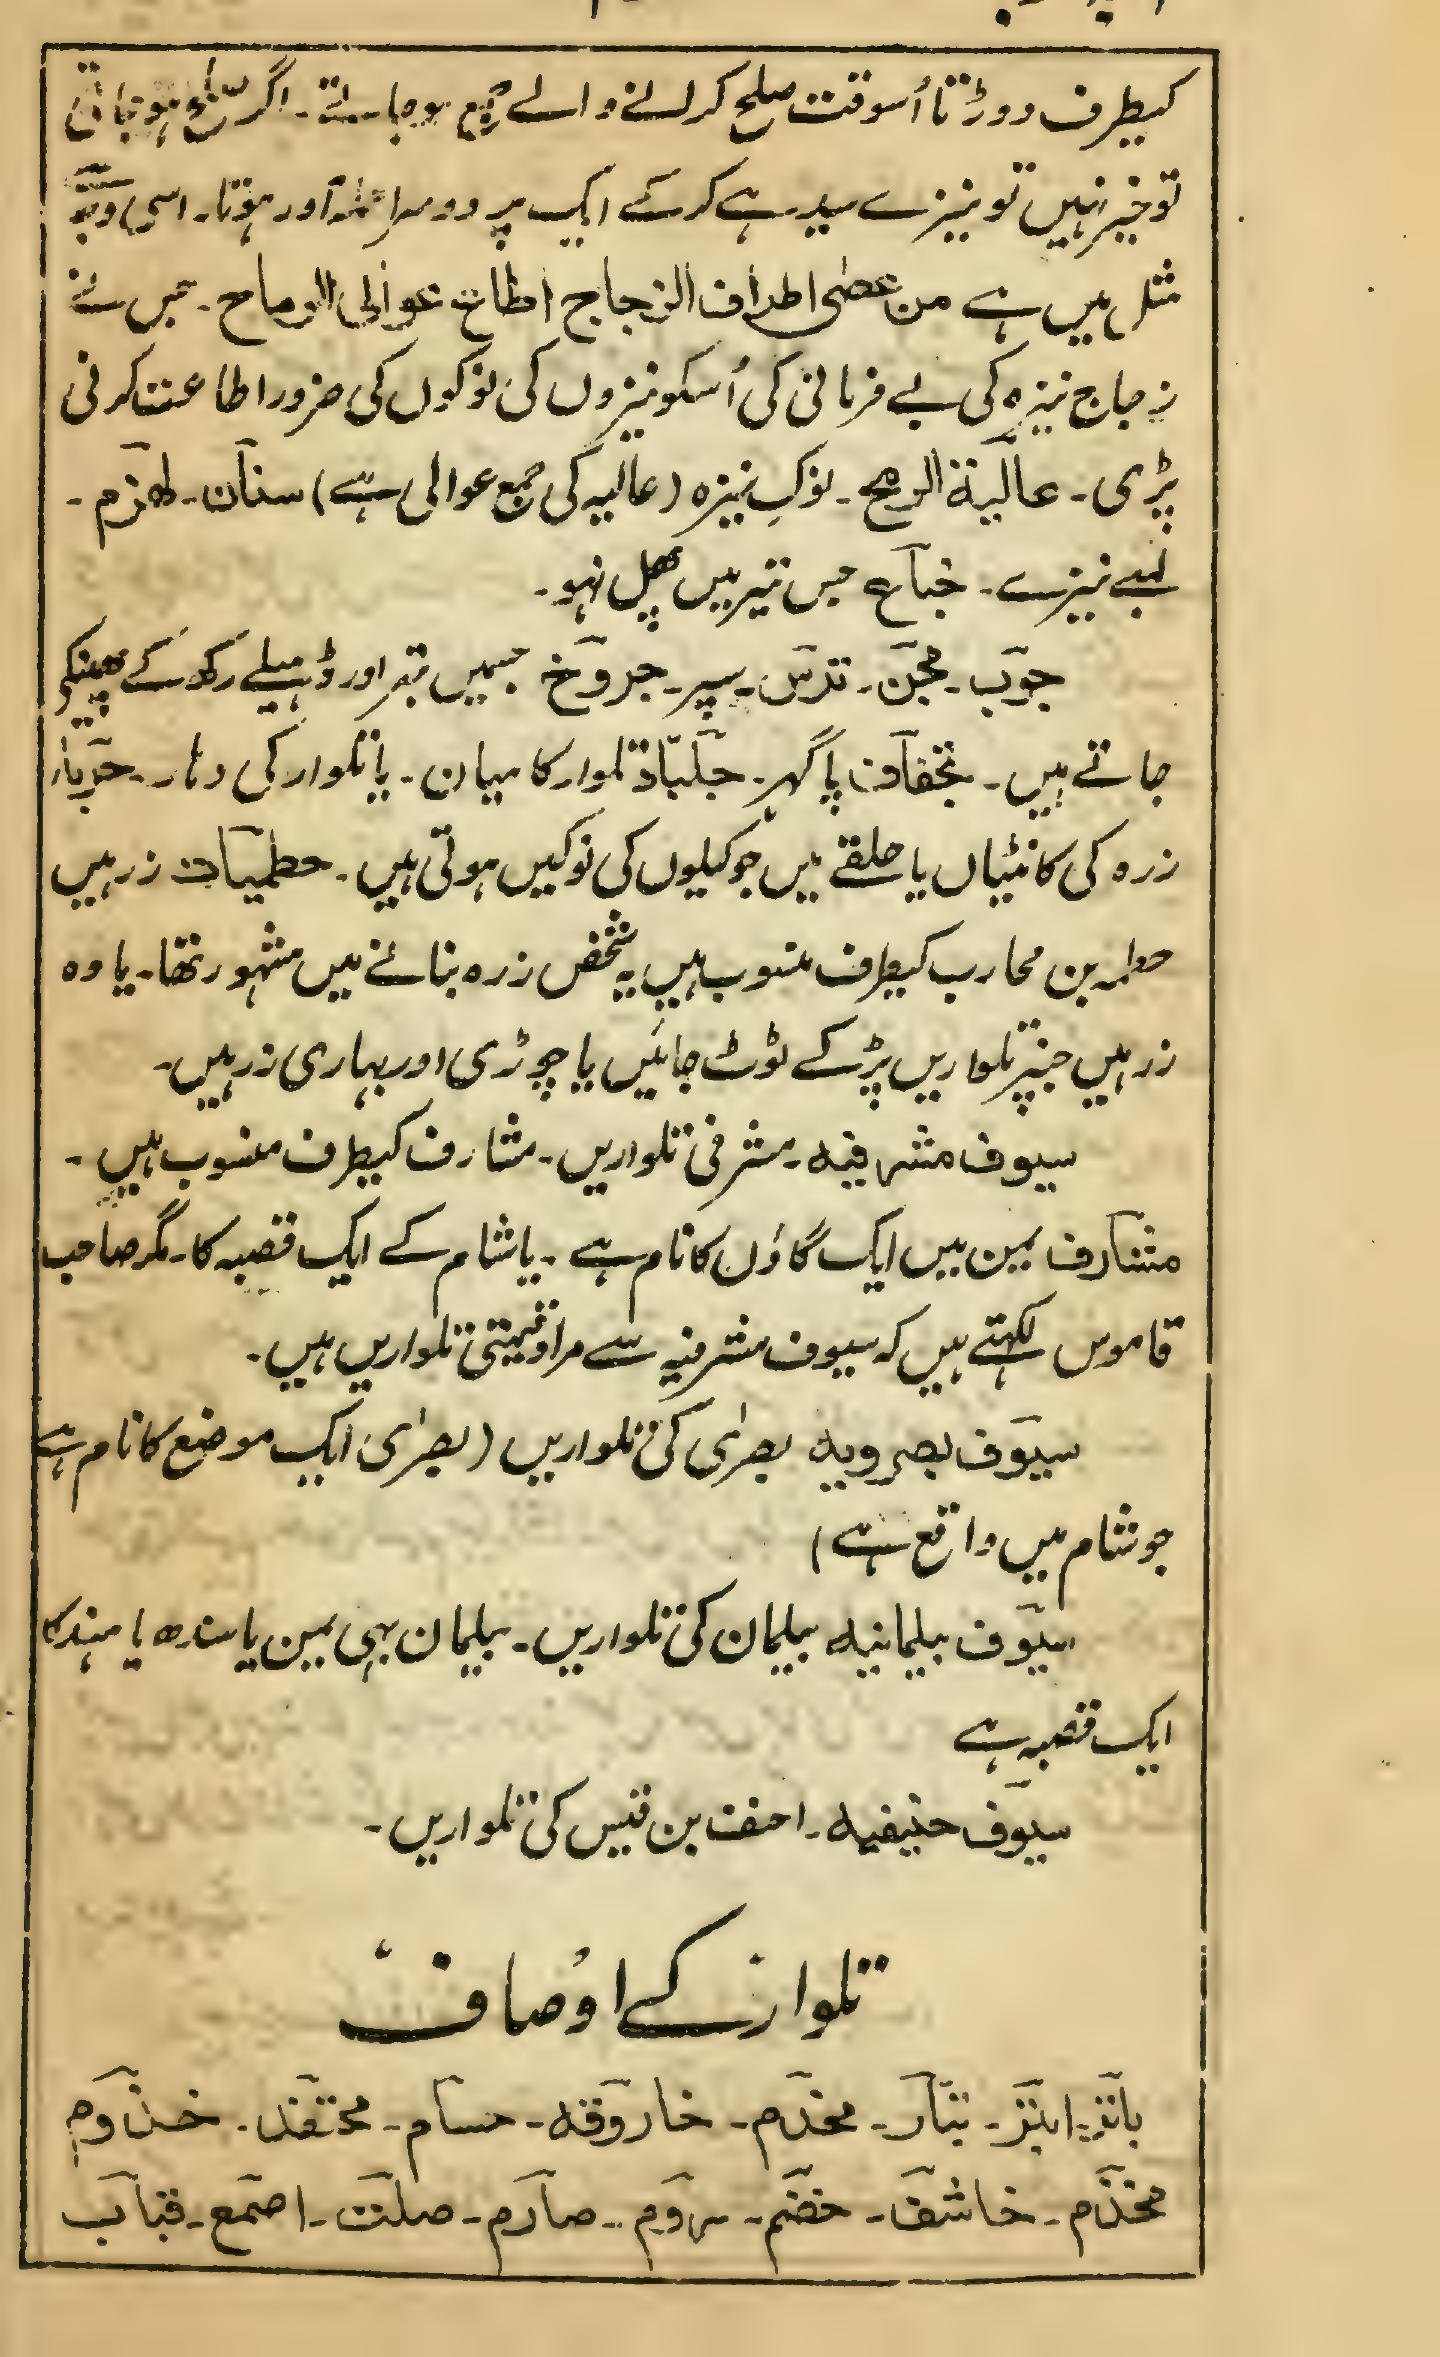 کیطرف دوڑتا اُسوقت صلح کرلنے والے بیچ ہوجاتے۔ اگر صلح ہوجاتی
تو خیر نہیں تو نیزے سیدہے کرکے ایک پر دوسرا حملہ آور ہوتا۔ اسی وجہ
مثل میں ہے من عصی اطراف الزجاج اطاع عوالی الرماح۔ جس نے
زجاج نیزہ کی بے فرمانی کی اُسکو نیزوں کی نوکوں کی ضرور اطاعت کرنی
پڑی۔ عالیة الرمح۔ نوکِ نیزہ (عالیہ کی جمع عوالی ہے) سنان۔ لهزم۔
لنبے نیزے۔ خباع جس تیر میں پھل نہو۔
جوب۔ مجن۔ ترس۔ سپر۔ جروخ جسمیں پتھر اور ڈہیلے رکھ کے پھینکے
جاتے ہیں۔ تجفاف پاگہر۔ جلباة تلوار کا میان۔ یا تلوار کی دہار۔ حرباء
زرہ کی کانٹیاں یا حلقے میں جو کیلوں کی نوکیں ہوتی ہیں۔ حطمیات زرہیں
حطمہ بن محارب کیطرف منسوب ہیں یہ شخص زرہ بنانے میں مشہور تھا۔ یا وہ
زرہیں جنپر تلواریں پڑکے ٹوٹ جائیں یا چوڑی اور بہاری زرہیں۔
سیوف مشرفیه۔ مشرفی تلواریں۔ مشارف کیطرف منسوب ہیں۔
مشارف یمن میں ایک گاؤں کا نام ہے۔ یا شام کے ایک قصبہ کا۔ مگر صاحب
قاموس لکھتے ہیں کہ سیوف مشرفیہ سے مراد قیمتی تلواریں ہیں۔
سیوف بصرویه بصرٰی کی تلواریں (بصرٰی ایک موضع کا نام ہے
جو شام میں واقع ہے)
سیوف بیلمانیه بیلمان کی تلواریں۔ بیلمان بہی یمن یا سندھ یا ہند کا
ایک قصبہ ہے
سیوف حنیفیه۔ احنف بن قیس کی تلواریں۔
تلوار کے اوصاف
باتر۔ ابتر۔ بتار۔ مخذم۔ خاروقه۔ حسام۔ محتفد۔ خذاوم
مخذم۔ خاشف۔ خضم۔ سروم۔ صارم۔ صلت۔ اصمع۔ قباب